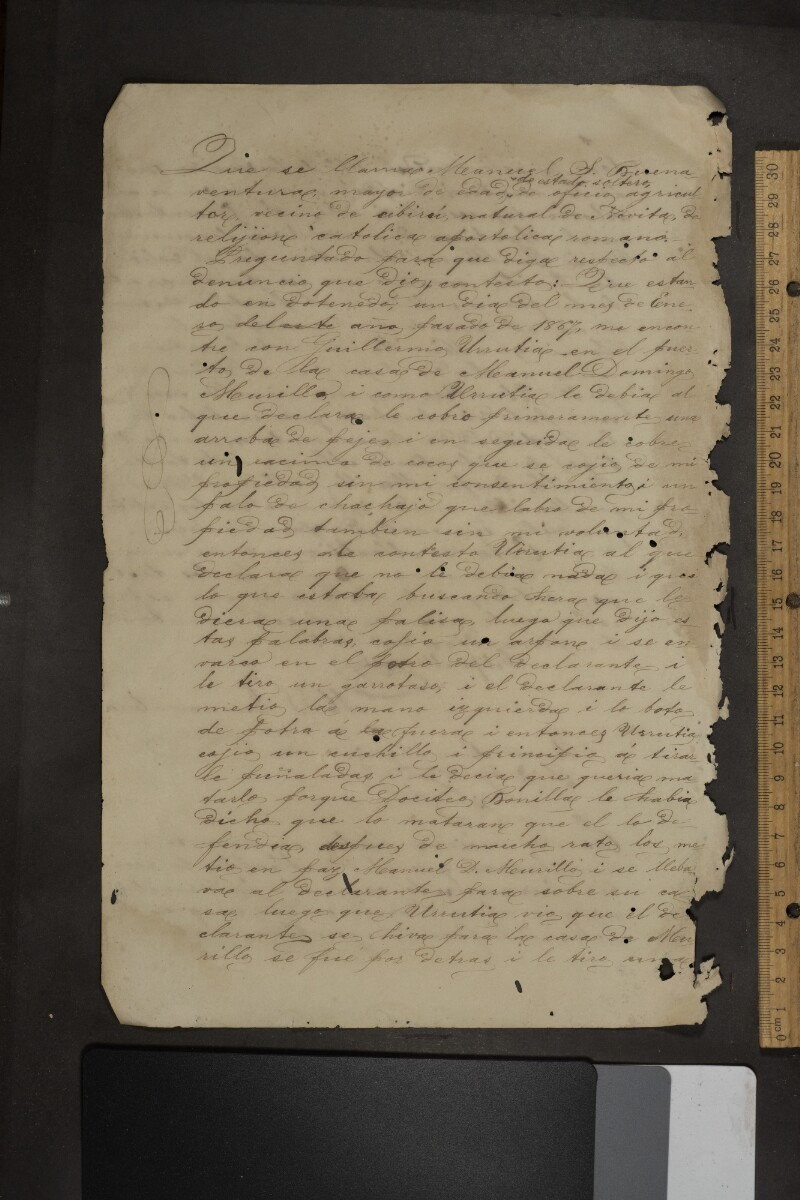 Que se llama Manuel S. Buena
ventura, mayor de edad, de estado soltero, de oficio agricul
tor, vecino de cibirú, natural de Novita, de
relijion catolica apostolica romano.
Preguntado para que diga respecto al
denuncio que dio, contesto: Que estan
do en dotenedo, un dia del mes de Ene
ro, del este año, pasado de 1867, me encon
tre con Guillermo Urrutia en el puer
to de la casa de Manuel Domingo
Murillo, i como Urrutia le debia al
que declara le cobro primeramente una
arroba de pejes, i en seguida le cobro
un racimo de cocos que se cojio de mi
propiedad sin mi consentimiento, i un
palo de chachajo que labro de mi pro
piedad tambien sin mi voluntad,
entonces me contesto Urrutia al que
declara que no le debia nada i que
lo que estaba buscando hera que le
diera una palisa, luego que dijo es
tas palabras, cojio un arpon i se en
varco en el potro del declarante i
le tiro un garrotaso, i el declarante le
metio la mano izquierda, i lo boto
de potra á la fuera i entonces Urrutia
cojio un cuchillo i principio á tirar
le puñaladas i le decia que queria ma
tarlo porque Dociteo Bonilla le habia
dicho que lo mataran que el lo de
fendia, despues de mucho rato los me
tio en paz Manuel D. Murillo i se lleba
va al declarante para sobre su ca
sa luego que Urrutia vio que el de
clarante se hiva para la casa de Mu
rillo se fue por detras i le tiro una